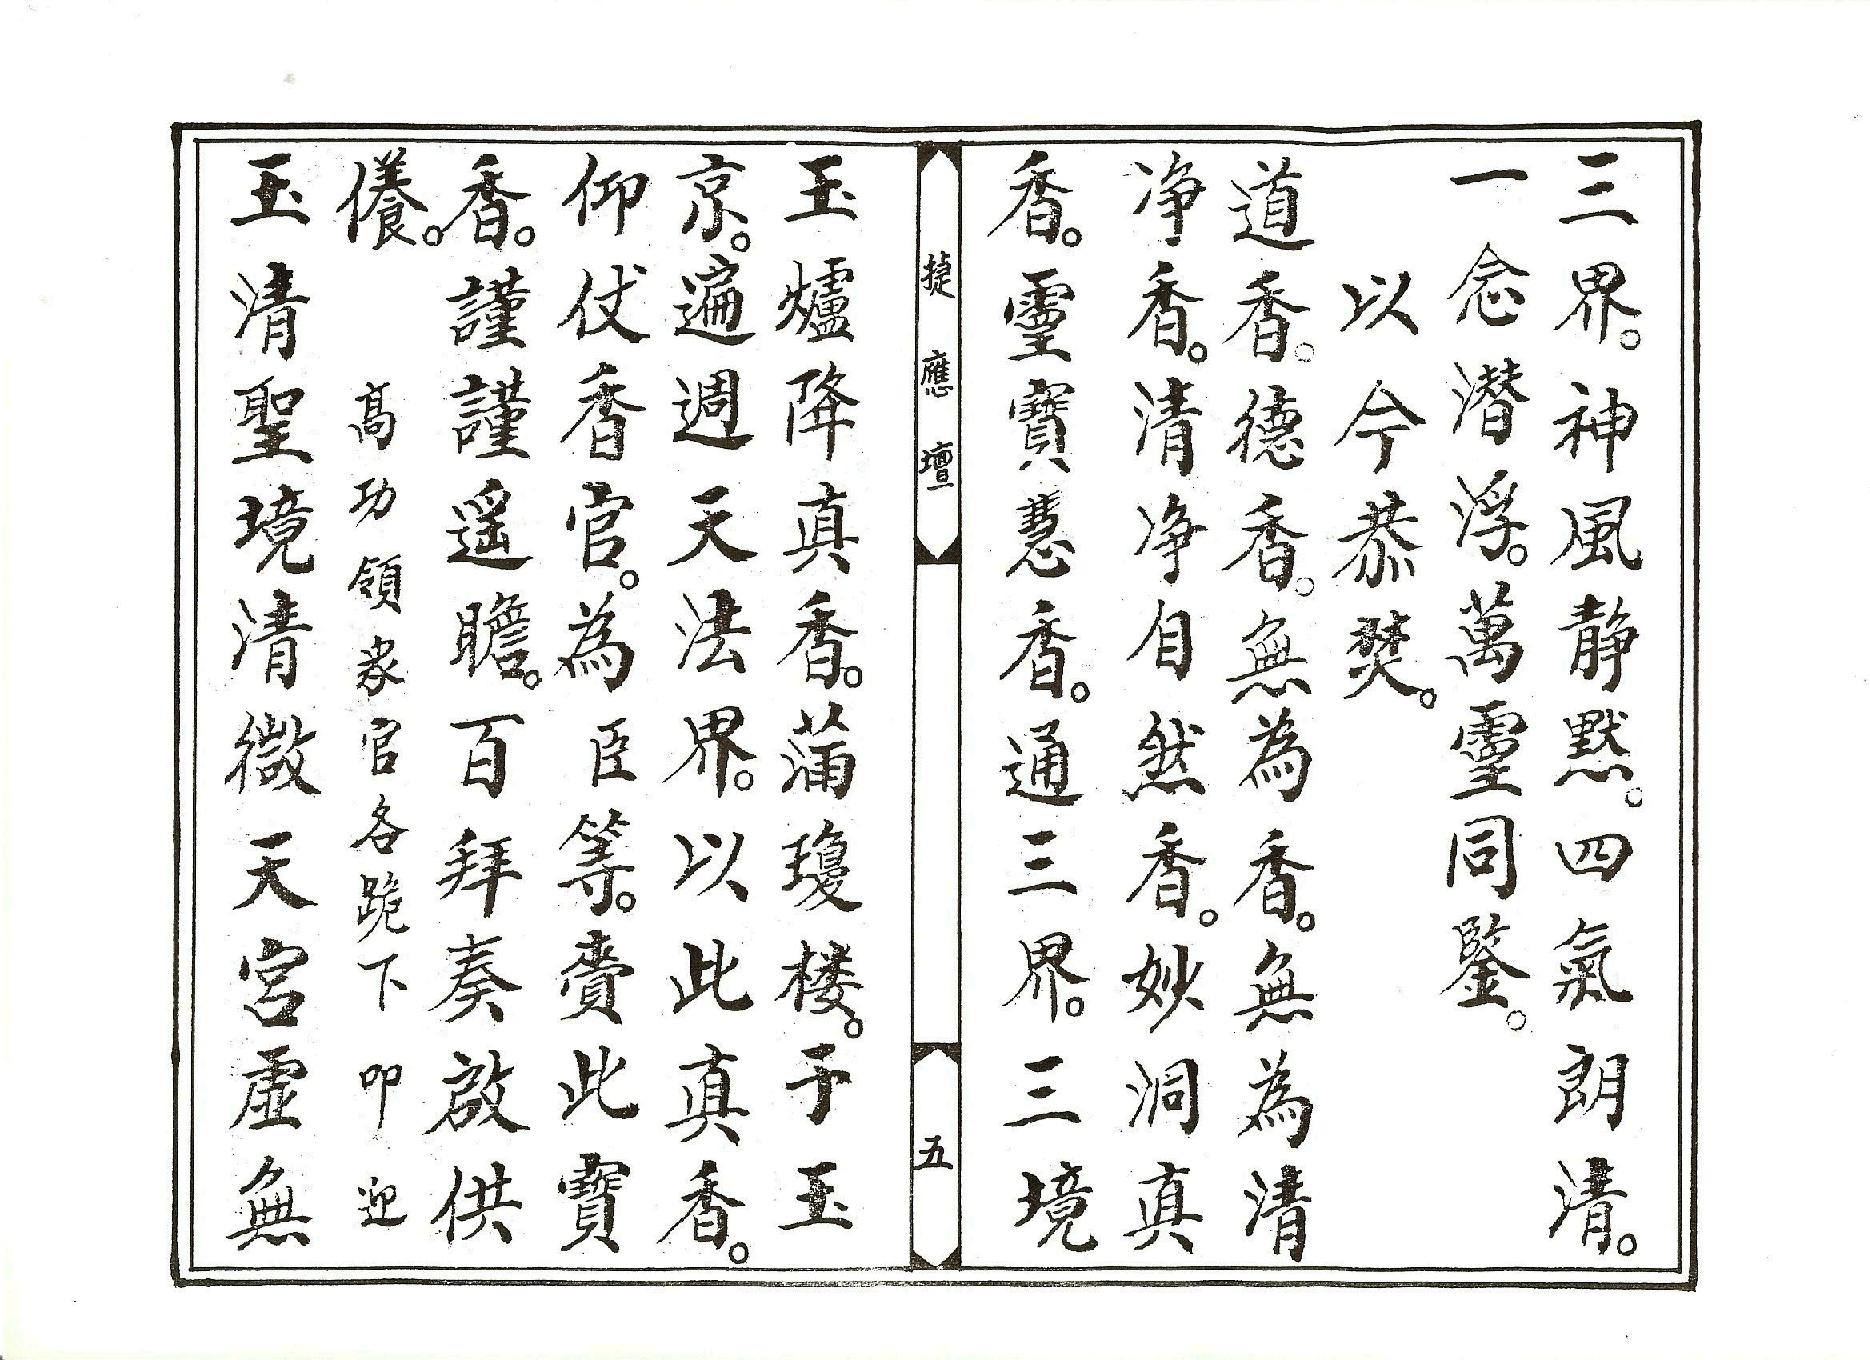 三界。神風静黙。四氣朗清。
一念潛浮。萬靈同鑒。
以今恭焚。
道香。德香。無為香。無為清
净香。清净自然香。妙洞真
香。靈寶慧香。通三界。三境
捷應壇
五
玉爐降真香。滿瓊楼。于玉
京。遍週天法界。以此真香。
仰仗香官。為臣等。賫此寶
香。謹謹遥瞻。百拜奏啟供
儀。 高功領衆官各跪下 叩迎
玉清聖境清微天宮虛無